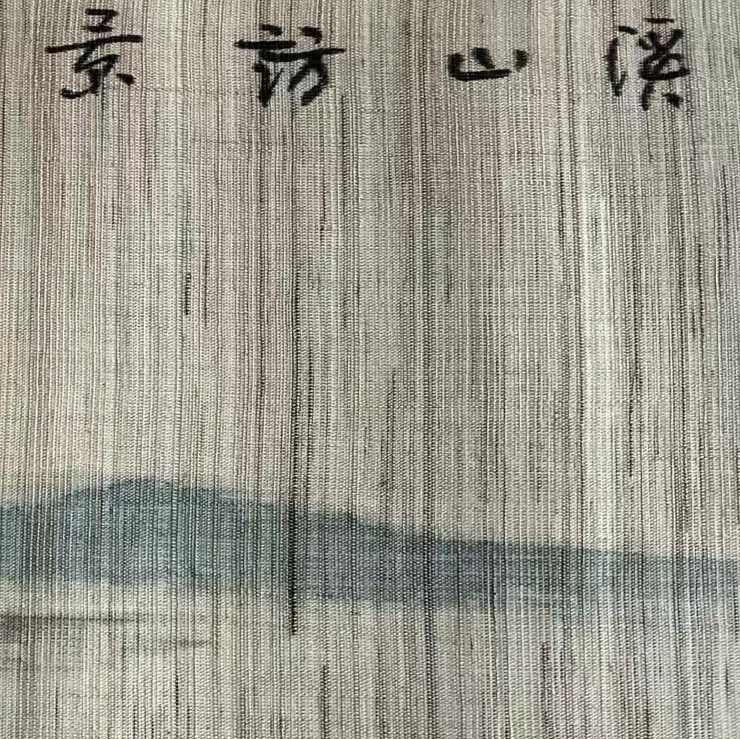 溪山訪景